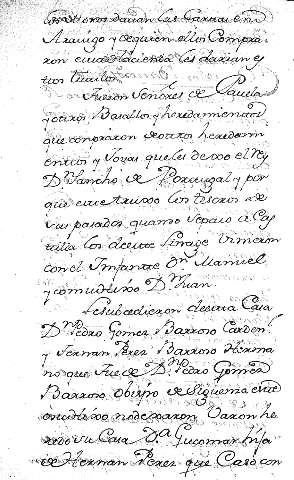 darian las Garras en
Araujo y de quien ellos Compra
ron esta Hacienda les darian es
tos titulos
Fueron Señores de Parla
y otros Basallos y heredamientos
que compraron de otros heredam
entos y Joyas que les dexo el Rey
Dn Sancho de Portugal y por
que este truxo los tesoros de
sus pasados quando se paso a Cas
tilla los de este linage vinieron
con el Infante Dn Manuel
y con su hixo Dn Juan.
Le subcedieron de esta Casa
Dn Pedro Gomez Barroso Carden
y Fernan Perez Barroso Herma
no que fue de Dn Pedro Gomez
Barroso obispo de Siguenza este
no dexaron Varon he
redo su Casa Da Guiomar hija
de Hernan Perez que Caso con